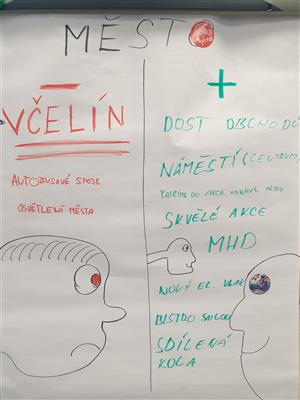 MĚSTO
–
VČELÍN
AUTOBUSOVÉ SPOJE
OSVĚTLENÍ MĚSTA
+
DOST OBCHODŮ
NÁMĚSTÍ (CENTRUM)
PATŘÍME DO AKCE ZDRAVÉ MĚSTO
SKVĚLÉ AKCE
MHD
NOVÝ EL. VLAK
BISTRO SAIGON
SDÍLENÁ
KOLA